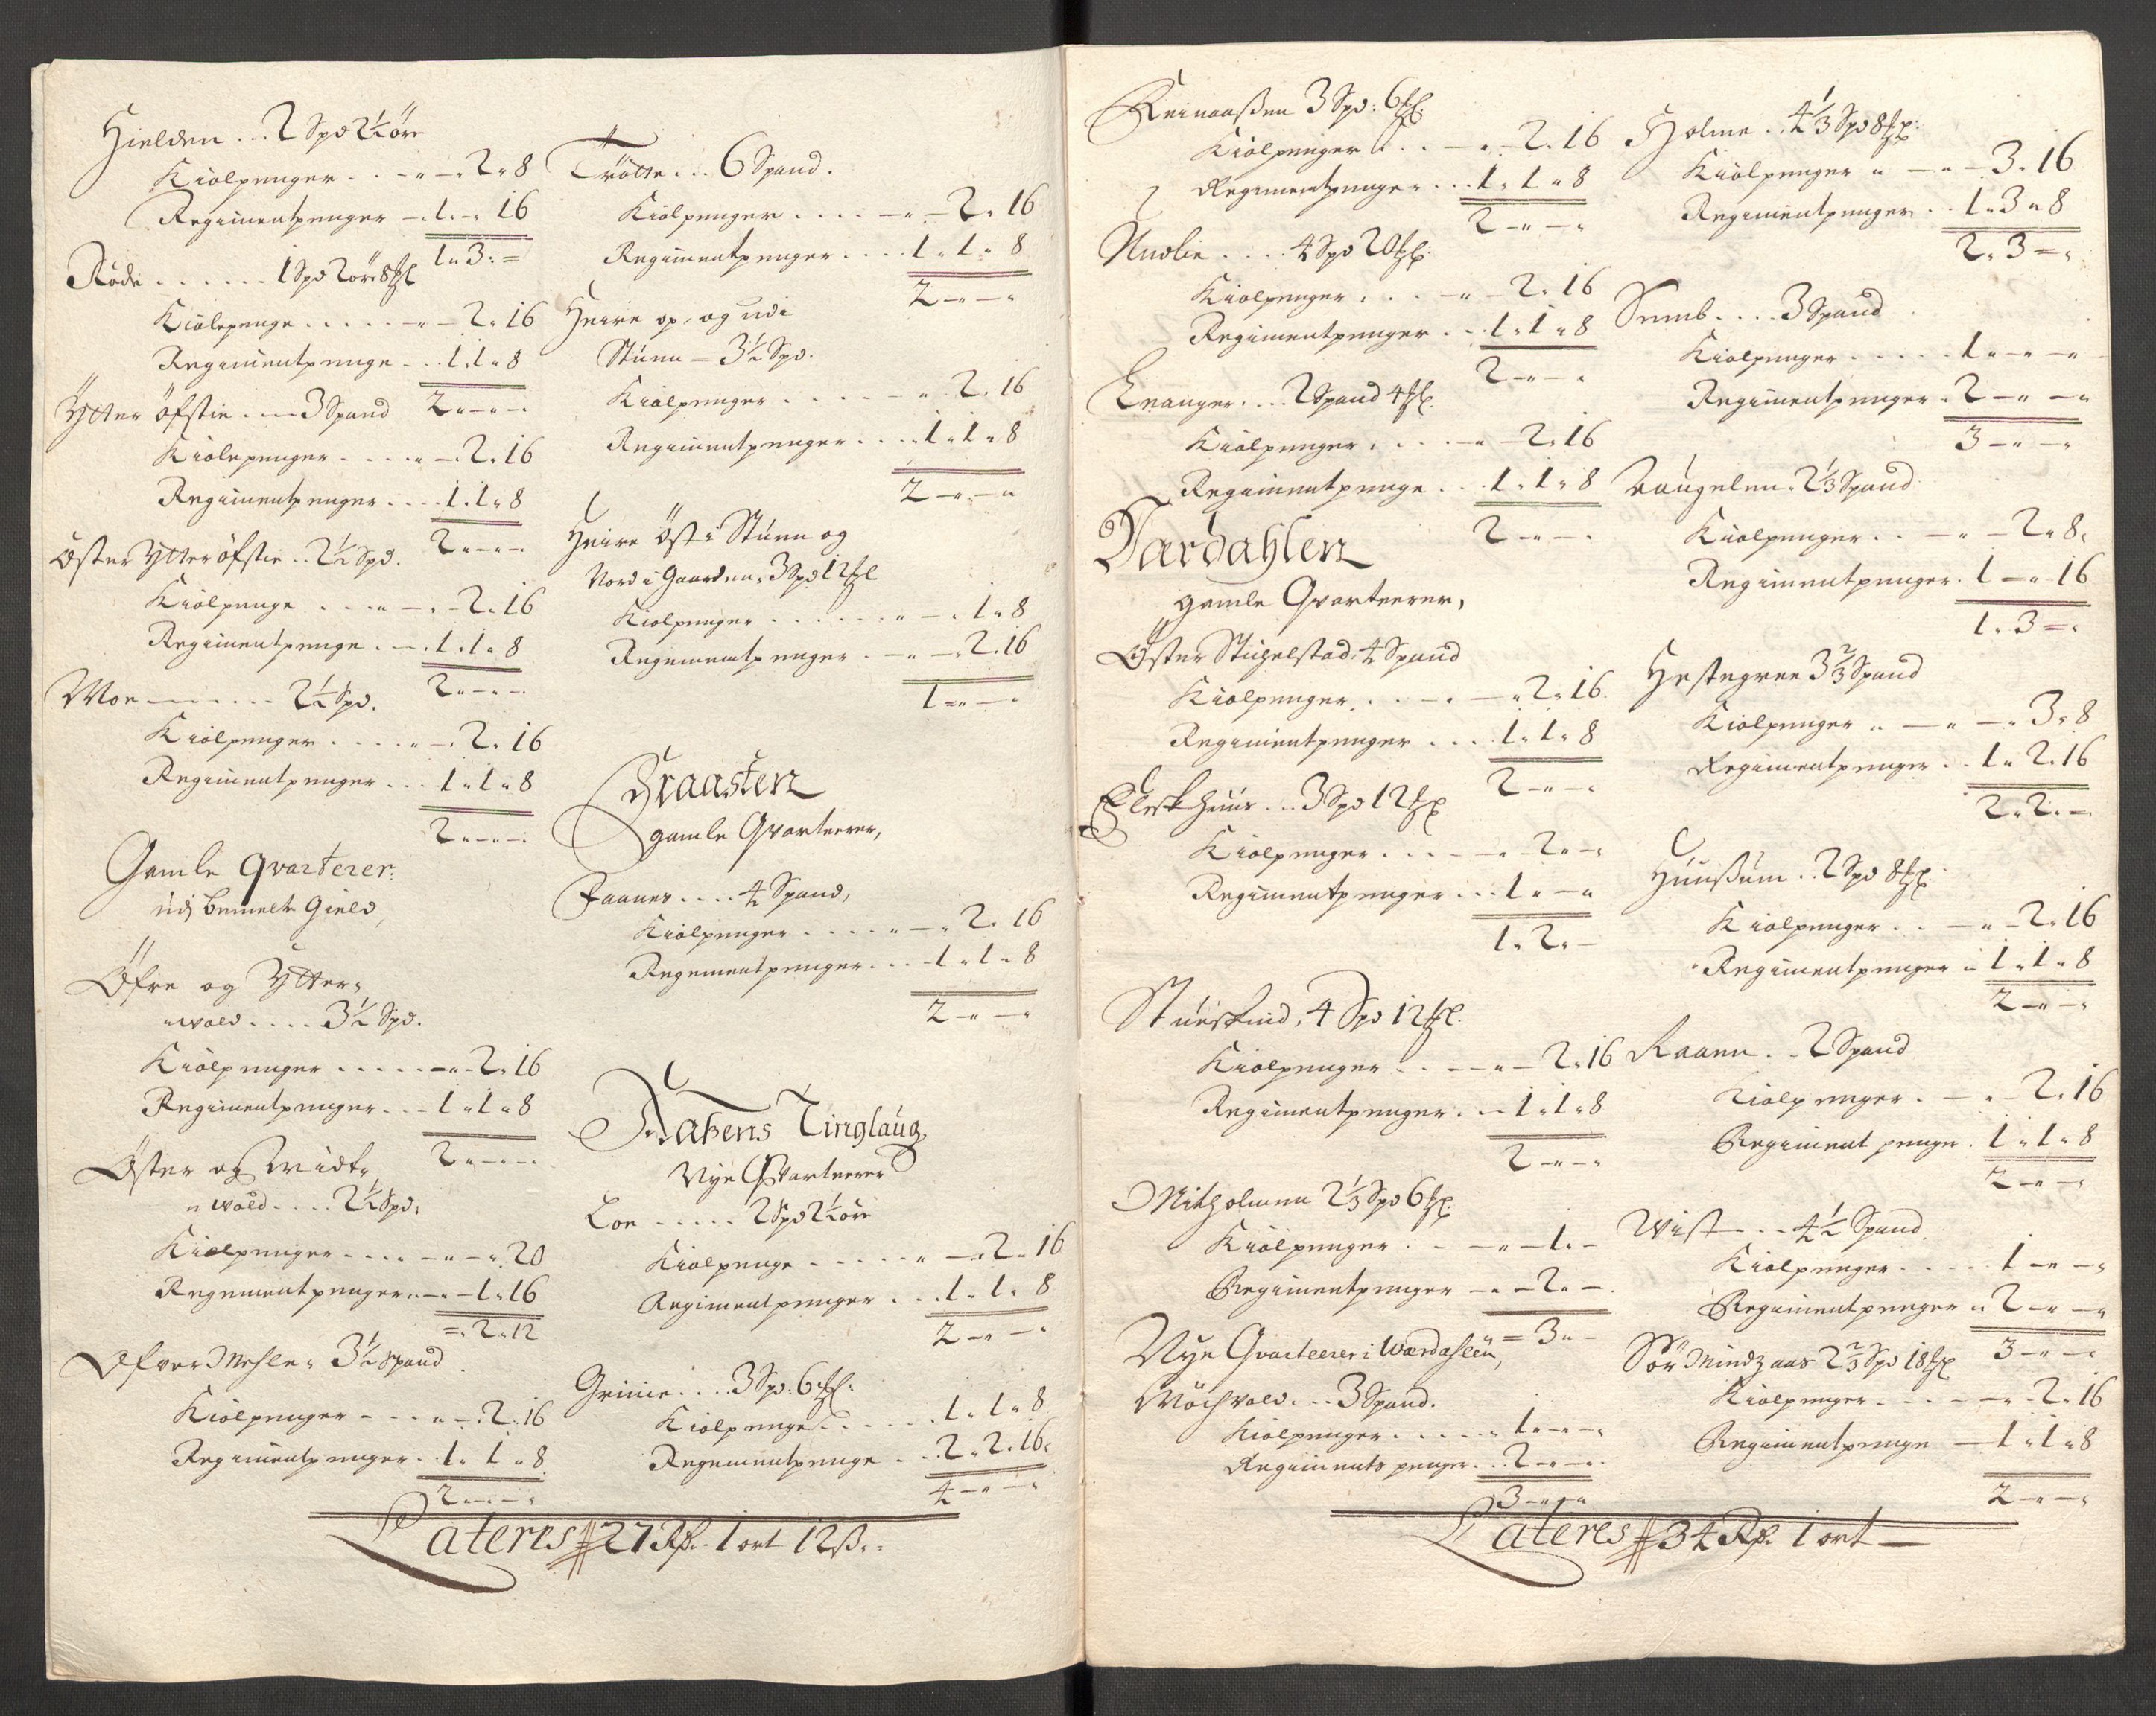 Hielden ... 2 Spd 2½ öre
Kiölpenger . . . " — " 2 " 8
Regimentpenger — 1 " — " 16
1 " 3 " =
Röde . . . . . . 1 Spd 2 öre 8 ℔
Kiölepenge . . . . . — " — 2 " 16
Regimentpenge . . . 1 " 1 " 8
2 " — " —
Ytter öfstie . . — 3 Spand
Kiölepenger . . . . " — " 2 " 16
Regimentpenger . . . . 1 " 1 " 8
2 " — " —
Öster Ytter öfstie . . 2½ Spd.
Kiölpenge . . . . " — " 2 " 16
Regimentpenge . — 1 " 1 " 8
2 " — " —
Moe — — — 2½ Spd.
Kiölpenger . . . . . " — " 2 " 16
Regimentpenger . . . 1 " 1 " 8
2 " — " —
Gamle Qvarterer
udj bemelte Gield,
Öfre og Ytter-
"wold . . . . 3½ Spd.
Kiölpenger . . . . . — " — 2 " 16
Regimentpenger . . . 1 " 1 " 8
2 " — " —
Öster og
"wold . . . . 2½ Spd:
Kiölpenger . . . . — " — " 20
Regementpenger . . — " — 1 " 16
= " 2 " 12
Ofver Mehle " 3½ Spand
Kiölpenger - . . " — " 2 " 16
Regimentpenger . . 1 " 1 " 8
2 " — " —
Trötte . . . 6 Spand.
Kiölpenger . . . . — " — 2 " 16
Regimentpenger . . . . 1 " 1 " 8
2 — " — "
Heire op, og udi
Stuen — 3½ Spd.
Kiölpenger . . . . . — " 2 " 16
Regimentpenger . . . . 1 " 1 " 8
2 — " — "
Heire Öst i Stuen og
Nord i Gaarden " 3 Spd 12 ℔
Kiölpenger . . . . . . " — " 1 " 8
Regementpenger . — " — " 2 " 16
1 — " — "
Graasten
gamle Qvarteerer,
Faanes . . . . 4 Spand,
Kiölpenger . . . . . " — " 2 " 16
Regementpenger . . . 1 " 1 " 8
2 — " — "
Tinglaug
Nye Qvarteerer
Loe . . . . . 2 Spd 2½ öre
Kiölpenge . . . . . " — " 2 " 16
Regimentpenger . . . 1 " 1 " 8
2 — " — "
Grinie . . . . 3 Spd: 6 ℔:
Kiölpenge . . . . . . 1 " 1 " 8
Regementpenge . . . 2 " 2 " 16
4 — " — "
Lateres 27 Rdr. 1 ort 12 ß. .
Reinaaßen 3 Spd: 6 ℔
Kiölpenger . . . — " — 2 " 16
Regimentpenger . . . 1 " 1 " 8
2 — " — "
. . . . 4 Spd 20 ℔:
Kiölpenger . . . — " — 2 " 16
Regimentpenger . . . 1 " 1 " 8
2 — " — "
Levanger . . . 2 Spand 4 ℔.
Kiölpenger . . . . — " — 2 " 16
Regimentpenge . . . 1 " 1 " 8
2 — " — "
Værdahlen
gamle Qvarteerer,
Öster Stichelstad, 4 Spand
Kiölpenger . . . . — " 2 " 16
Regimentpenger . . . . 1 " 1 " 8
2 — " — "
. . . 3 Spd 12 ℔
Kiölpenger . . . . — " 2 " — "
Regimentpenger . . . 1 " — "
1 " 2 " —
4 Spd 12 ℔.
Kiölpenger . . . — " — 2 " 16
Regimentpenger . . . 1 " 1 " 8
2 — " — "
Mitholmen 2⅓ Spd 6 ℔.
Kiölpenger . . — " — 1 " —
Regimentpenger — " — 2 " —
= 3 " —
Nye Qvarteerer i Wærdahlen,
. . . 3 Spand.
Kiölpenger . . . . . . 1 " — " — "
Regiments penger . . . 2 " — " —
3 — " — "
Holme . . 4⅓ Spd 8 ℔:
Kiölpenger " — " — 3 " 16
Regimentpenger . . 1 " 3 " 8
2 " 3 — "
Semb . . . . 3 Spand
Kiölpenger . . . . . . 1 " — " — "
Regimentpenger . 2 — " — "
3 — " — "
2⅓ Spand
Kiölpenger . . — " — 2 " 8 "
Regimentpenger . 1 — " 16
1 " 3 — "
Hestegree 3⅔ Spand
Kiölpenger " — " — " 3 " 8
Regimentpenger . . 1 " 2 " 16
2 " 2 " —
. . 2 Spd 8 ℔.
Kiölpenger . . — " — 2 " 16
Regimentpenger " 1 " 1 " 8
2 — " — "
Raaen . . 2 Spand
Kiölpenger . — " — 2 " 16
Regiment penge . 1 " 1 " 8
2 — " — "
Wist . . . 4½ Spand.
Kiölpenger . . . . . 1 — " — "
Regimentpenger " 2 — " — "
3 — " — "
Sör Mindzaas 2⅔ Spd 18 ℔
Kiölpenger . . . . — " 2 " 16
Regimentpenge — 1 " 1 " 8
2 — " — "
Lateres 34 Rdr. 1 ort —